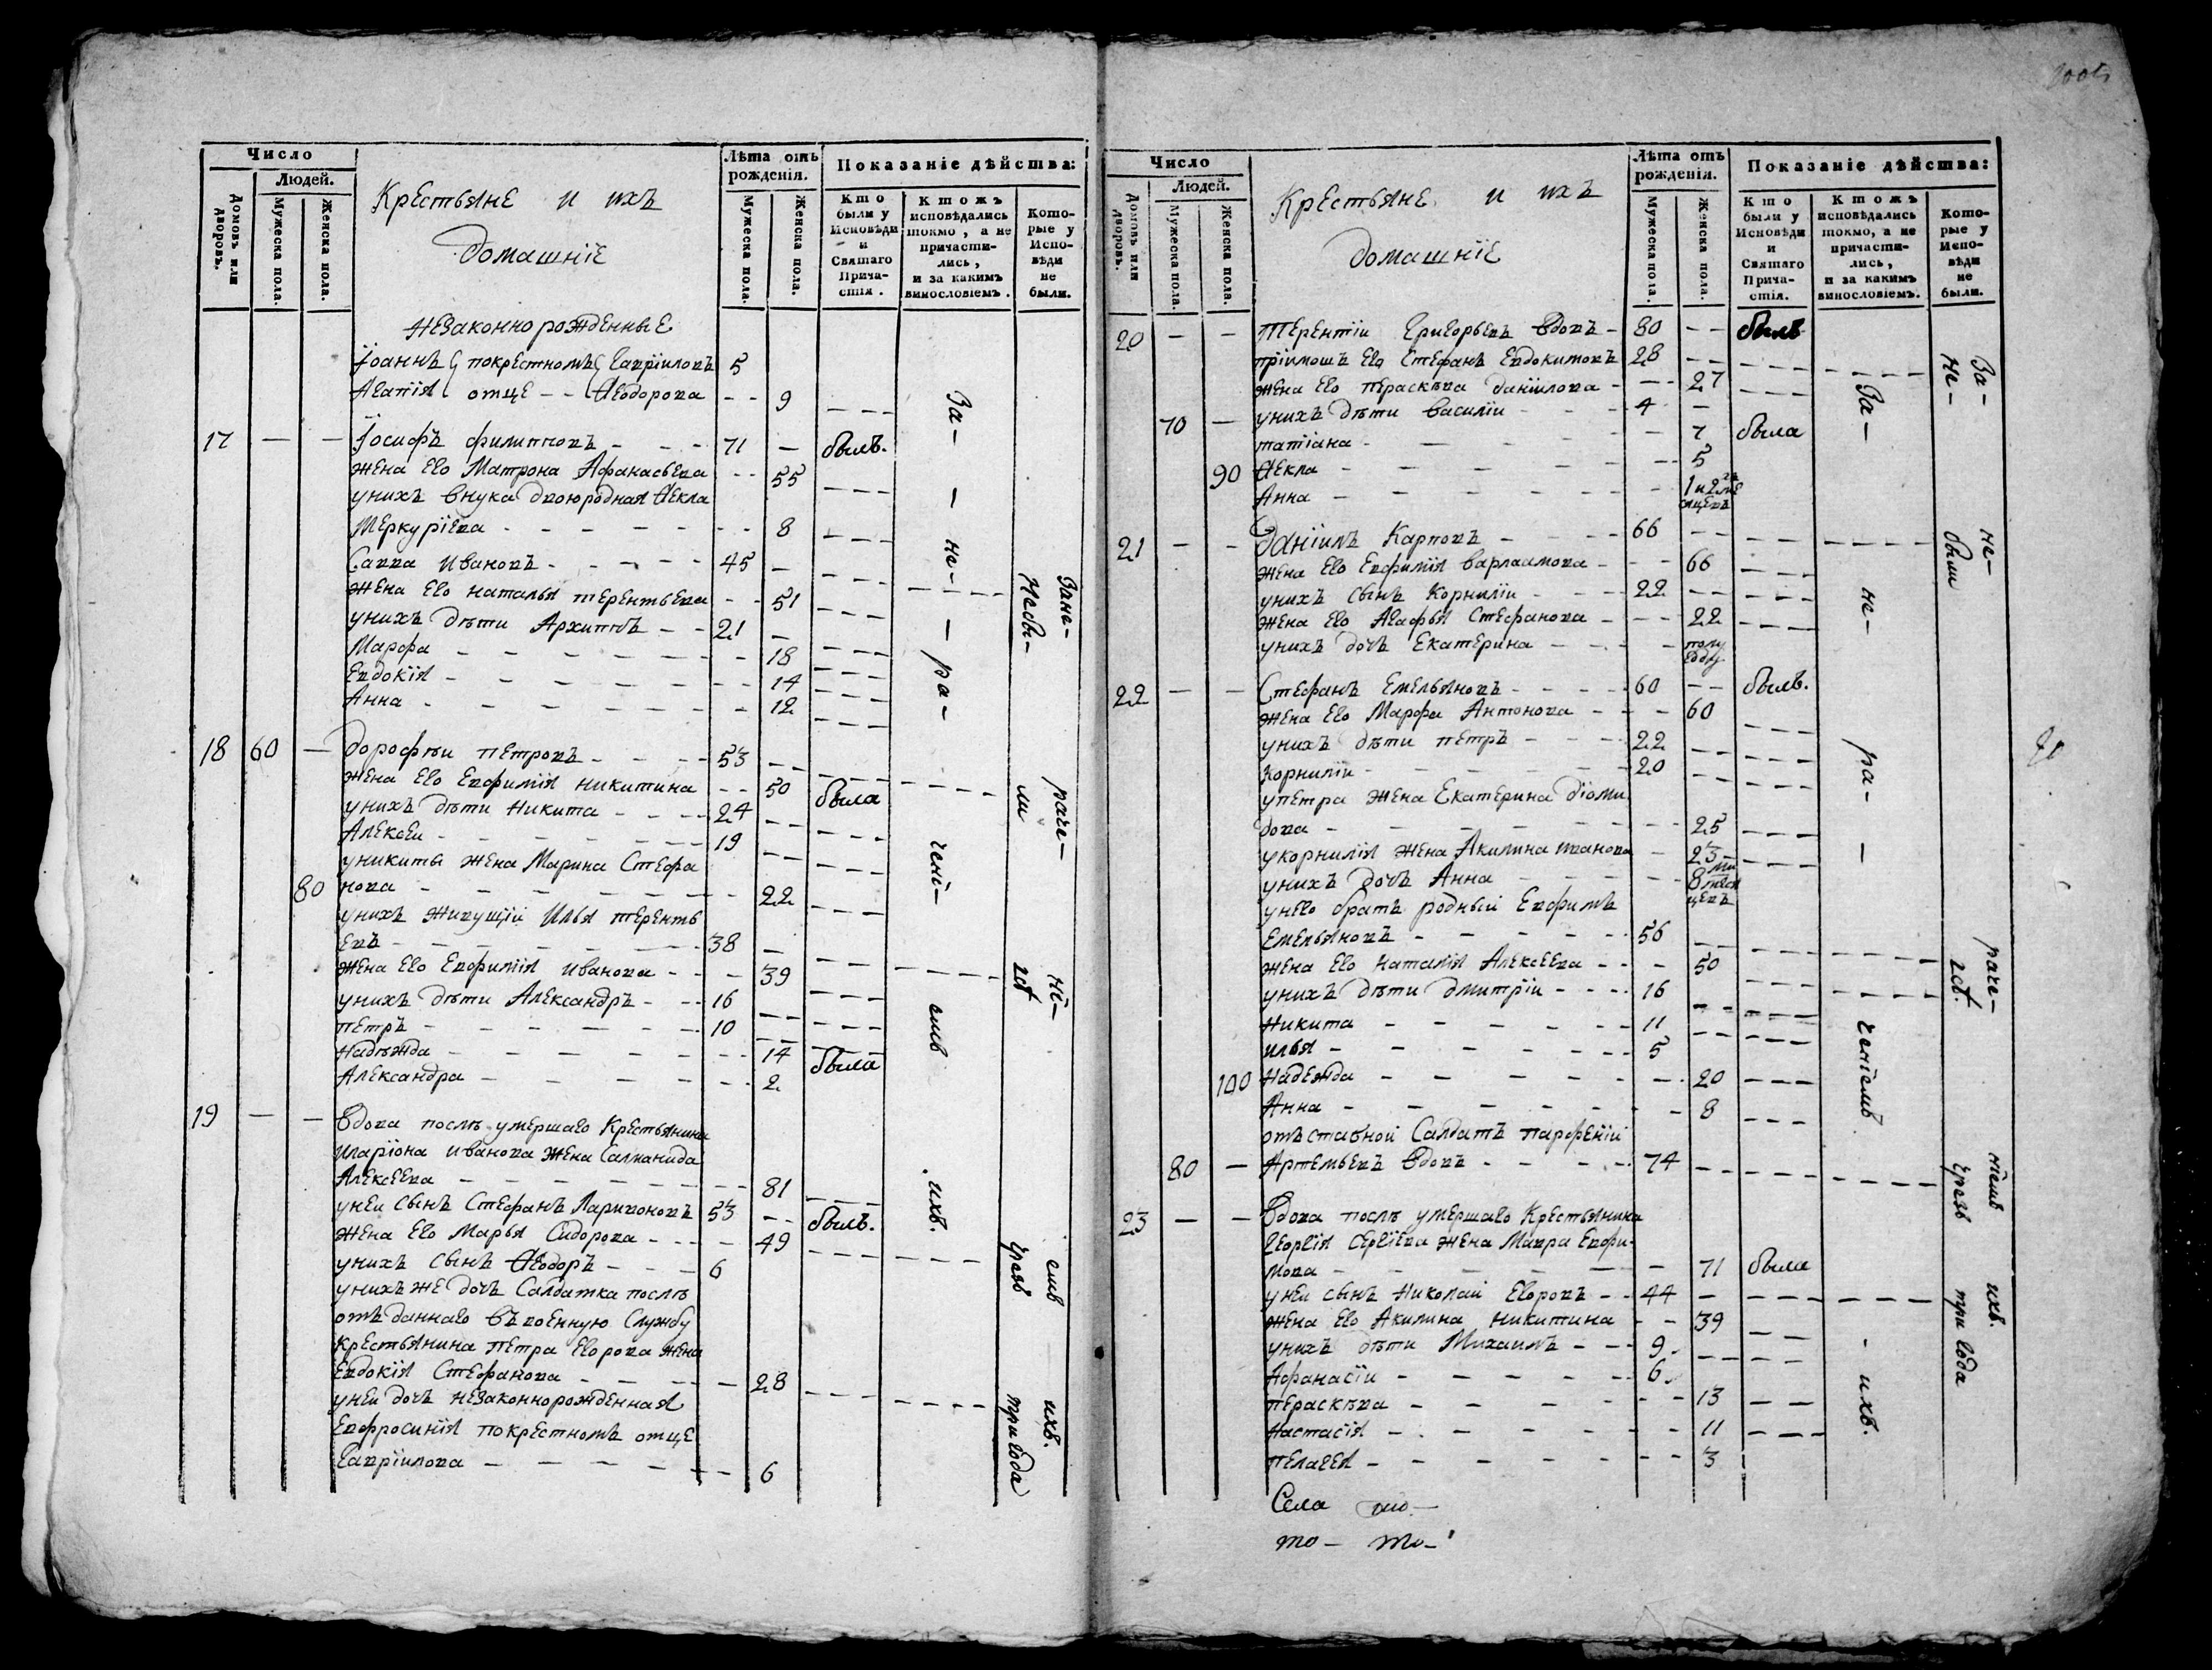 Число
Людей.
Домовъ или дворовъ.
Мужеска пола.
Женска пола.
Крестьяне и ихъ
домашнїе
Лѣта отъ рожденїя.
Мужеска пола.
Женска пола.
Показанїе дѣйства:
Кто были у Исповѣди и Святаго Причастїя.
Ктожъ исповѣдались токмо, а не причастились, и за какимъ винословїемъ.
Которые у Исповѣди не были.
Незаконнорожденные
Їоаннъ покрестномъ Гавріиловъ 5
Агапїя отце - - Ѳеодорова - - 9
17 — — Їосифъ филипповъ - - - 71 — былъ.
жена его Матрона Афанасьева - - 55
унихъ внука двоюродная Ѳекла
Меркурїева - - - - - 8
Савва Ивановъ - - - - - 45 —
жена его наталья терентьева - - 51
унихъ дѣти Архиппъ - - 21 —
Марфа - - - - - - 18
Евдокїя - - - - - - 14
Анна - - - - - - 12
18 60 — дорофѣи петровъ - - - - 53 - -
жена его Евфимїя никитина - - 50 была
унихъ дѣти Никита - - - - 24 - -
Алексеи - - - - - - 19
уникиты жена Марина Стефа
80 нова - - - - - - 22
унихъ живущїй Илья теренть
евъ - - - - - - 38 —
жена его Евфимїя иванова - - - 39
унихъ дѣти Александръ - - - 16
петръ - - - - - - 10
надѣжда - - - - - - 14 была
Александра - - - - - - 2
19 — — вдова послѣ умершаго Крестьянина
иларїона иванова жена Саламанида
Алексеева - - - - - - 81
унеи сынъ Стефанъ Ларивоновъ 53 - - былъ.
жена его Марья Сидорова - - - - 49
унихъ сынъ Ѳеодоръ - - - - 6
унихъ же дочь Салдатка послѣ
отъ даннаго въ военную Службу
крестьянина петра Егорова жена
Евдокїя Стефанова - - - - - 28
унеи дочь незаконнорожденная
Евфросинїя покрестномъ отце
Гаврїилова - - - - - - 6
За - - не - - ра - ченї - емъ ихъ.
Зане - раче - нї - емъ ихъ.
Небы - ли чрезъ три года
Число
Людей.
Домовъ или дворовъ.
Мужеска пола.
Женска пола.
Крестьяне и ихъ
домашнїе
Лѣта отъ рожденїя.
Мужеска пола.
Женска пола.
Показанїе дѣйства:
Кто были у Исповѣди и Святаго Причастїя.
Ктожъ исповѣдались токмо, а не причастились, и за какимъ винословїемъ.
Которые у Исповѣди не были.
20 — — Терентїи Григорьевъ вдовъ - 80 - - былъ
прїимошъ его Стефанъ Евдокимовъ 28 - -
жена его Перасковa данїилова - - - 27
70 — унихъ дѣти василїи - - - 4 -
татїана - - - - - - 7 была
90 Ѳекла - - - - - - 5
Анна - - - - - - 1 и 2 ме
сяцевъ
21 - - данїилъ Карповъ - - - - 66 - -
жена его Евфимїя варлаамова - - - 66
унихъ сынъ Корнилїи - - - - 22 - -
жена его Агафья Стефанова - - - - 22
унихъ дочь Екатерина - - - - полу
году
22 — — Стефанъ Емельяновъ - - - - 60 - - былъ.
жена его Марфа Антонова - - - 60
унихъ дѣти петръ - - - - 22
корнилїи - - - - - - 20
упетра жена Екатерина дїоми
дова - - - - - - 25
укорнилїя жена Акилина иванова - 23
унихъ дочь Анна - - - - - 8 меся
цевъ
унего братъ родный Евфимъ
Емельяновъ - - - - - 56
жена его наталїя Алексеева - - - 50
унихъ дѣти дмитрїи - - - - 16
Никита - - - - - - 11
илья - - - - - - 5
100 Надежда - - - - - - 20
Анна - - - - - - 8
отъ ставной Салдатъ парфенїй
80 — Артемьевъ вдовъ - - - - 74
23 — — вдова послѣ умершаго Крестьянина
Георгїя Сергїева жена Мавра Евфи-
мова - - - - - - 71 была
унеи сынъ Николаи Егоровъ - - 44 -
жена его Акилина никитина - - 39
унихъ дѣти Михаилъ - - - 9
Афанасїи - - - - - 6
Перасковa - - - - - - 13
настасїя - - - - - - 11
пелагея - - - - - - 3
За - не - ра - - ченїемъ - ихъ.
За - не - раче - нїемъ ихъ.
не - были чрезъ три года
Села
то -